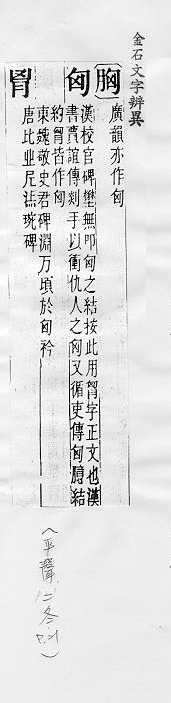 金石文字辨異
胸
廣韻亦作匈
匈
漢校官碑樊無叩匈之結按此用胷字正文也漢
書賈誼傳剡手以衝仇人之匈又循吏傳匈臆結
約胷皆作匈
東魏敬史君碑淵万頃於匈衿
胷
唐比丘尼法琬碑
(平聲 二冬